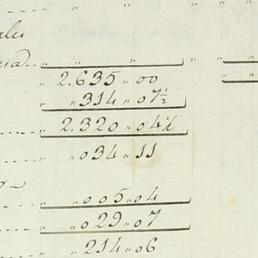 ales
esa
" " "
2.635 " 00
" 314 " 07½
2.320 " 04½
" 034 " 11
" 005 " 04
" 029 " 07
" 214 " 06